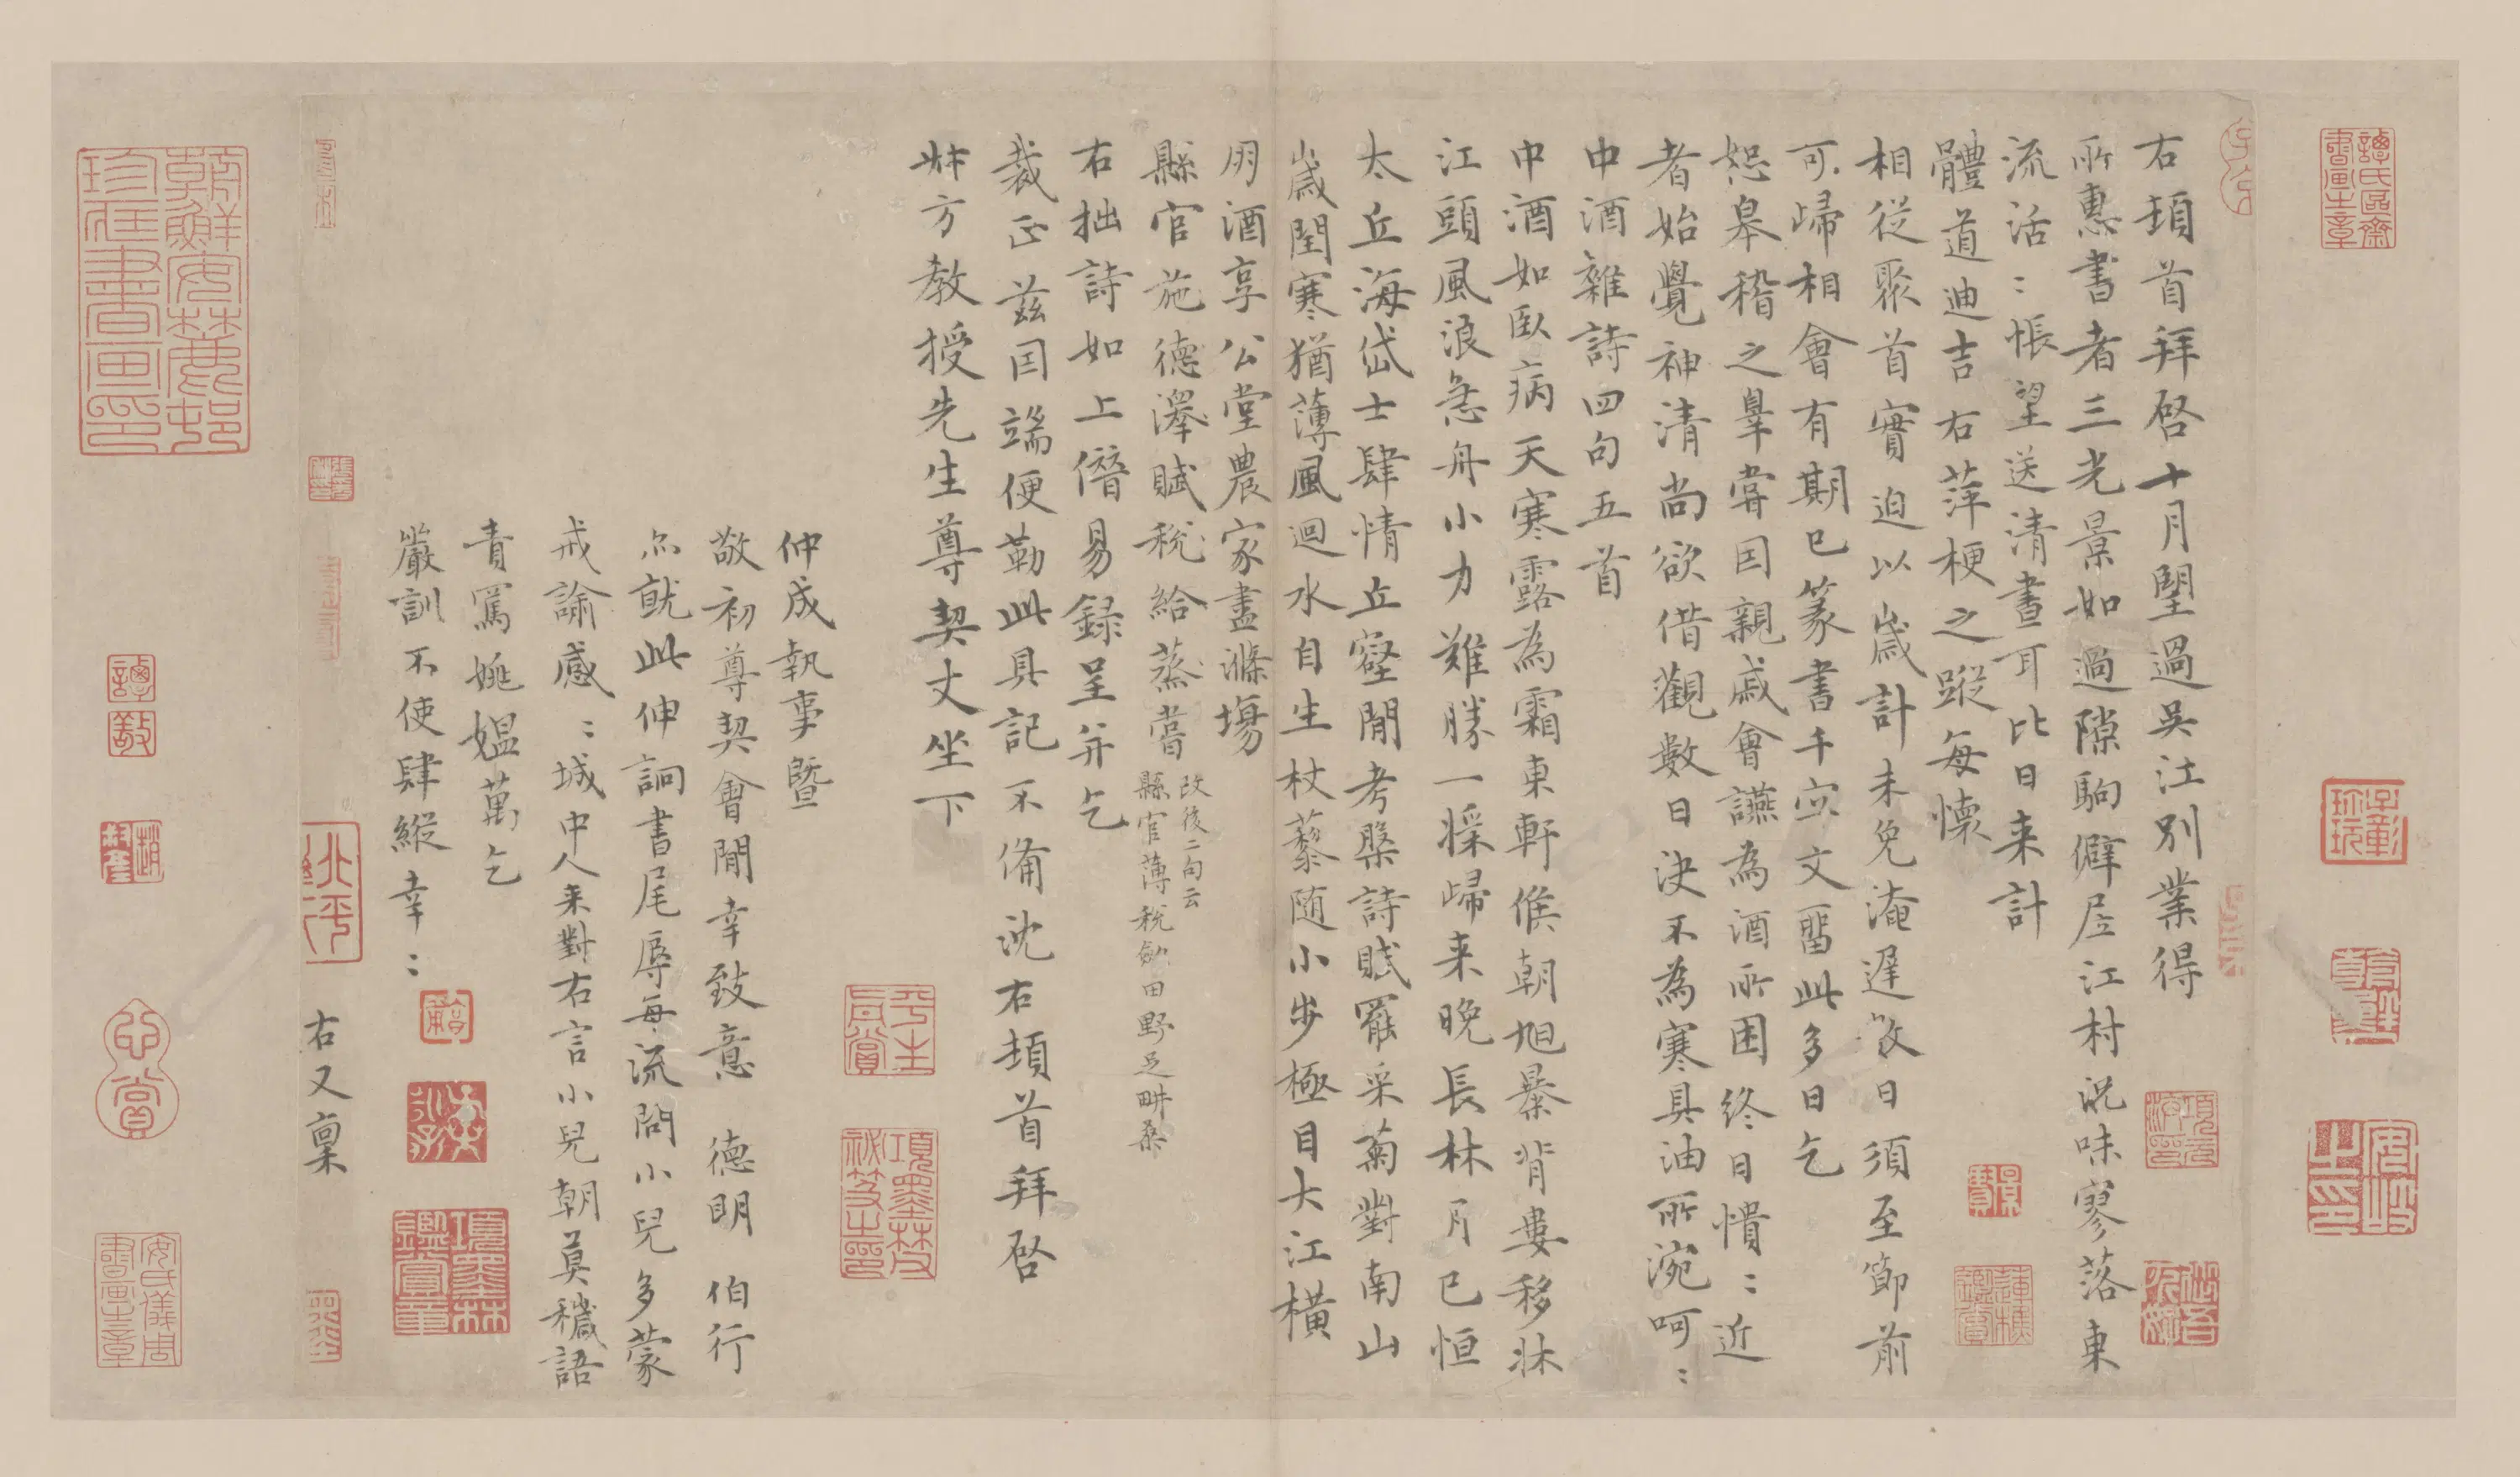 右頓首拜啓十月望過吳江別業得
所惠書者三光景如過隙駒僻居江村況味寥落東
流活〻悵望送清晝耳比日来計
體道迪吉右萍梗之蹤每懷
相從聚首實迫以歲計未免淹遲數日須至節前
可歸相會有期已篆書千字文畱此多日乞
恕辠稽之辠嘗因親戚會讌為酒所困終日憒〻近
者始覺神清尚欲借觀數日決不為寒具油所涴呵〻
中酒雜詩四句五首
中酒如臥病天寒露為霜東軒候朝旭暴背婁移牀
江頭風浪急舟小力難勝一槳歸来晚長林月已恒
太丘海岱士肆情丘壑閒考槃詩賦罷采菊對南山
歲閏寒猶薄風迴水自生杖藜随小步極目大江橫
朋酒享公堂農家盡滌場
縣官施德澤賦稅給蒸嘗 改後二句云
縣官薄稅斂田野足畊桑
右拙詩如上僭易録呈并乞
裁正茲因端便勒此具記不備沈右頓首拜啓
艸方教授先生尊契丈坐下
仲成執事暨
敬初尊契會閒幸致意 德明 伯行
亦就此伸詞書尾辱每流問小兒多蒙
戒諭感〻城中人来對右言小兒朝莫穢語
責罵姚媼萬乞
嚴訓不使肆縱幸〻
右又稟
朝鮮安麓邨珍藏書畫印
譚氏區齋書畫之章
安氏儀周書畫之章
項墨林鑑賞章
項墨林秘笈之印
平生真賞
心賞
安岐之印
子京